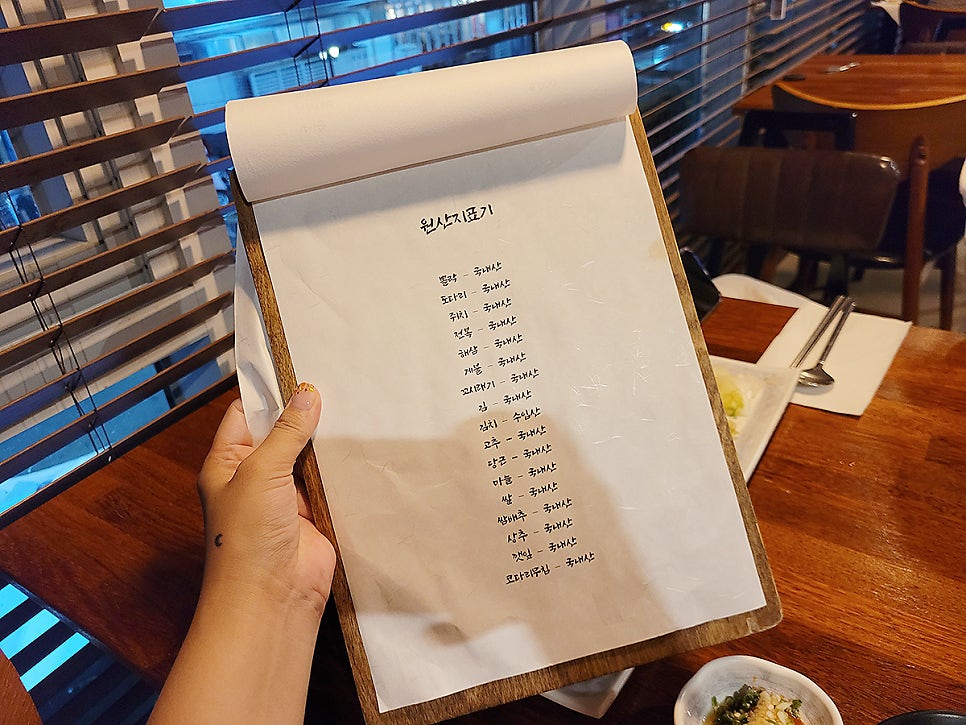 원산지표기
볼락 - 국내산
도다리 - 국내산
쥐치 - 국내산
전복 - 국내산
해삼 - 국내산
게불 - 국내산
꼬시래기 - 국내산
김 - 국내산
김치 - 수입산
고추 - 국내산
당근 - 국내산
마늘 - 국내산
쌀 - 국내산
쌈배추 - 국내산
상추 - 국내산
깻잎 - 국내산
코다리무침 - 국내산